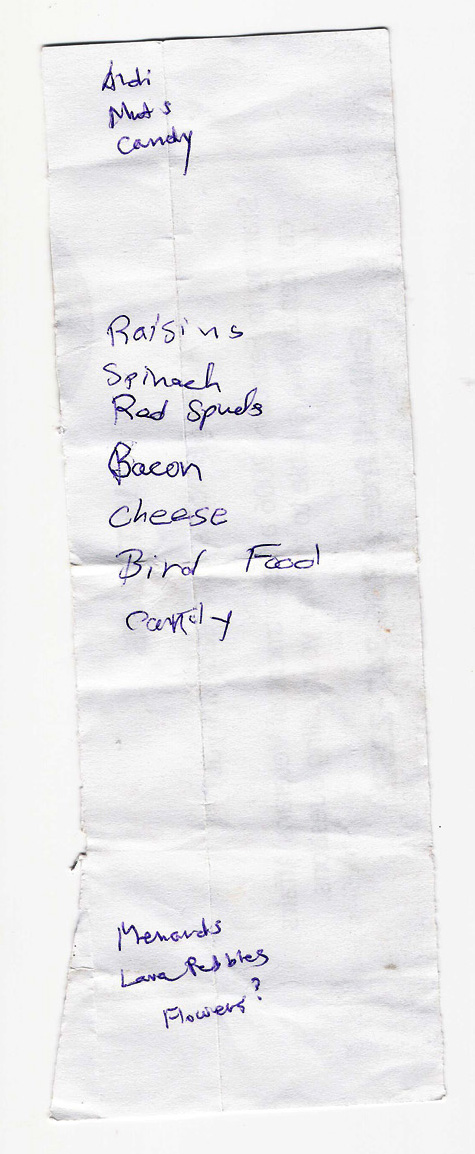 Aldi
Nuts
Candy
Raisins
Spinach
Red Spuds
Bacon
Cheese
Bird Food
Candy
Menards
Lava Pebbles
Flowers?